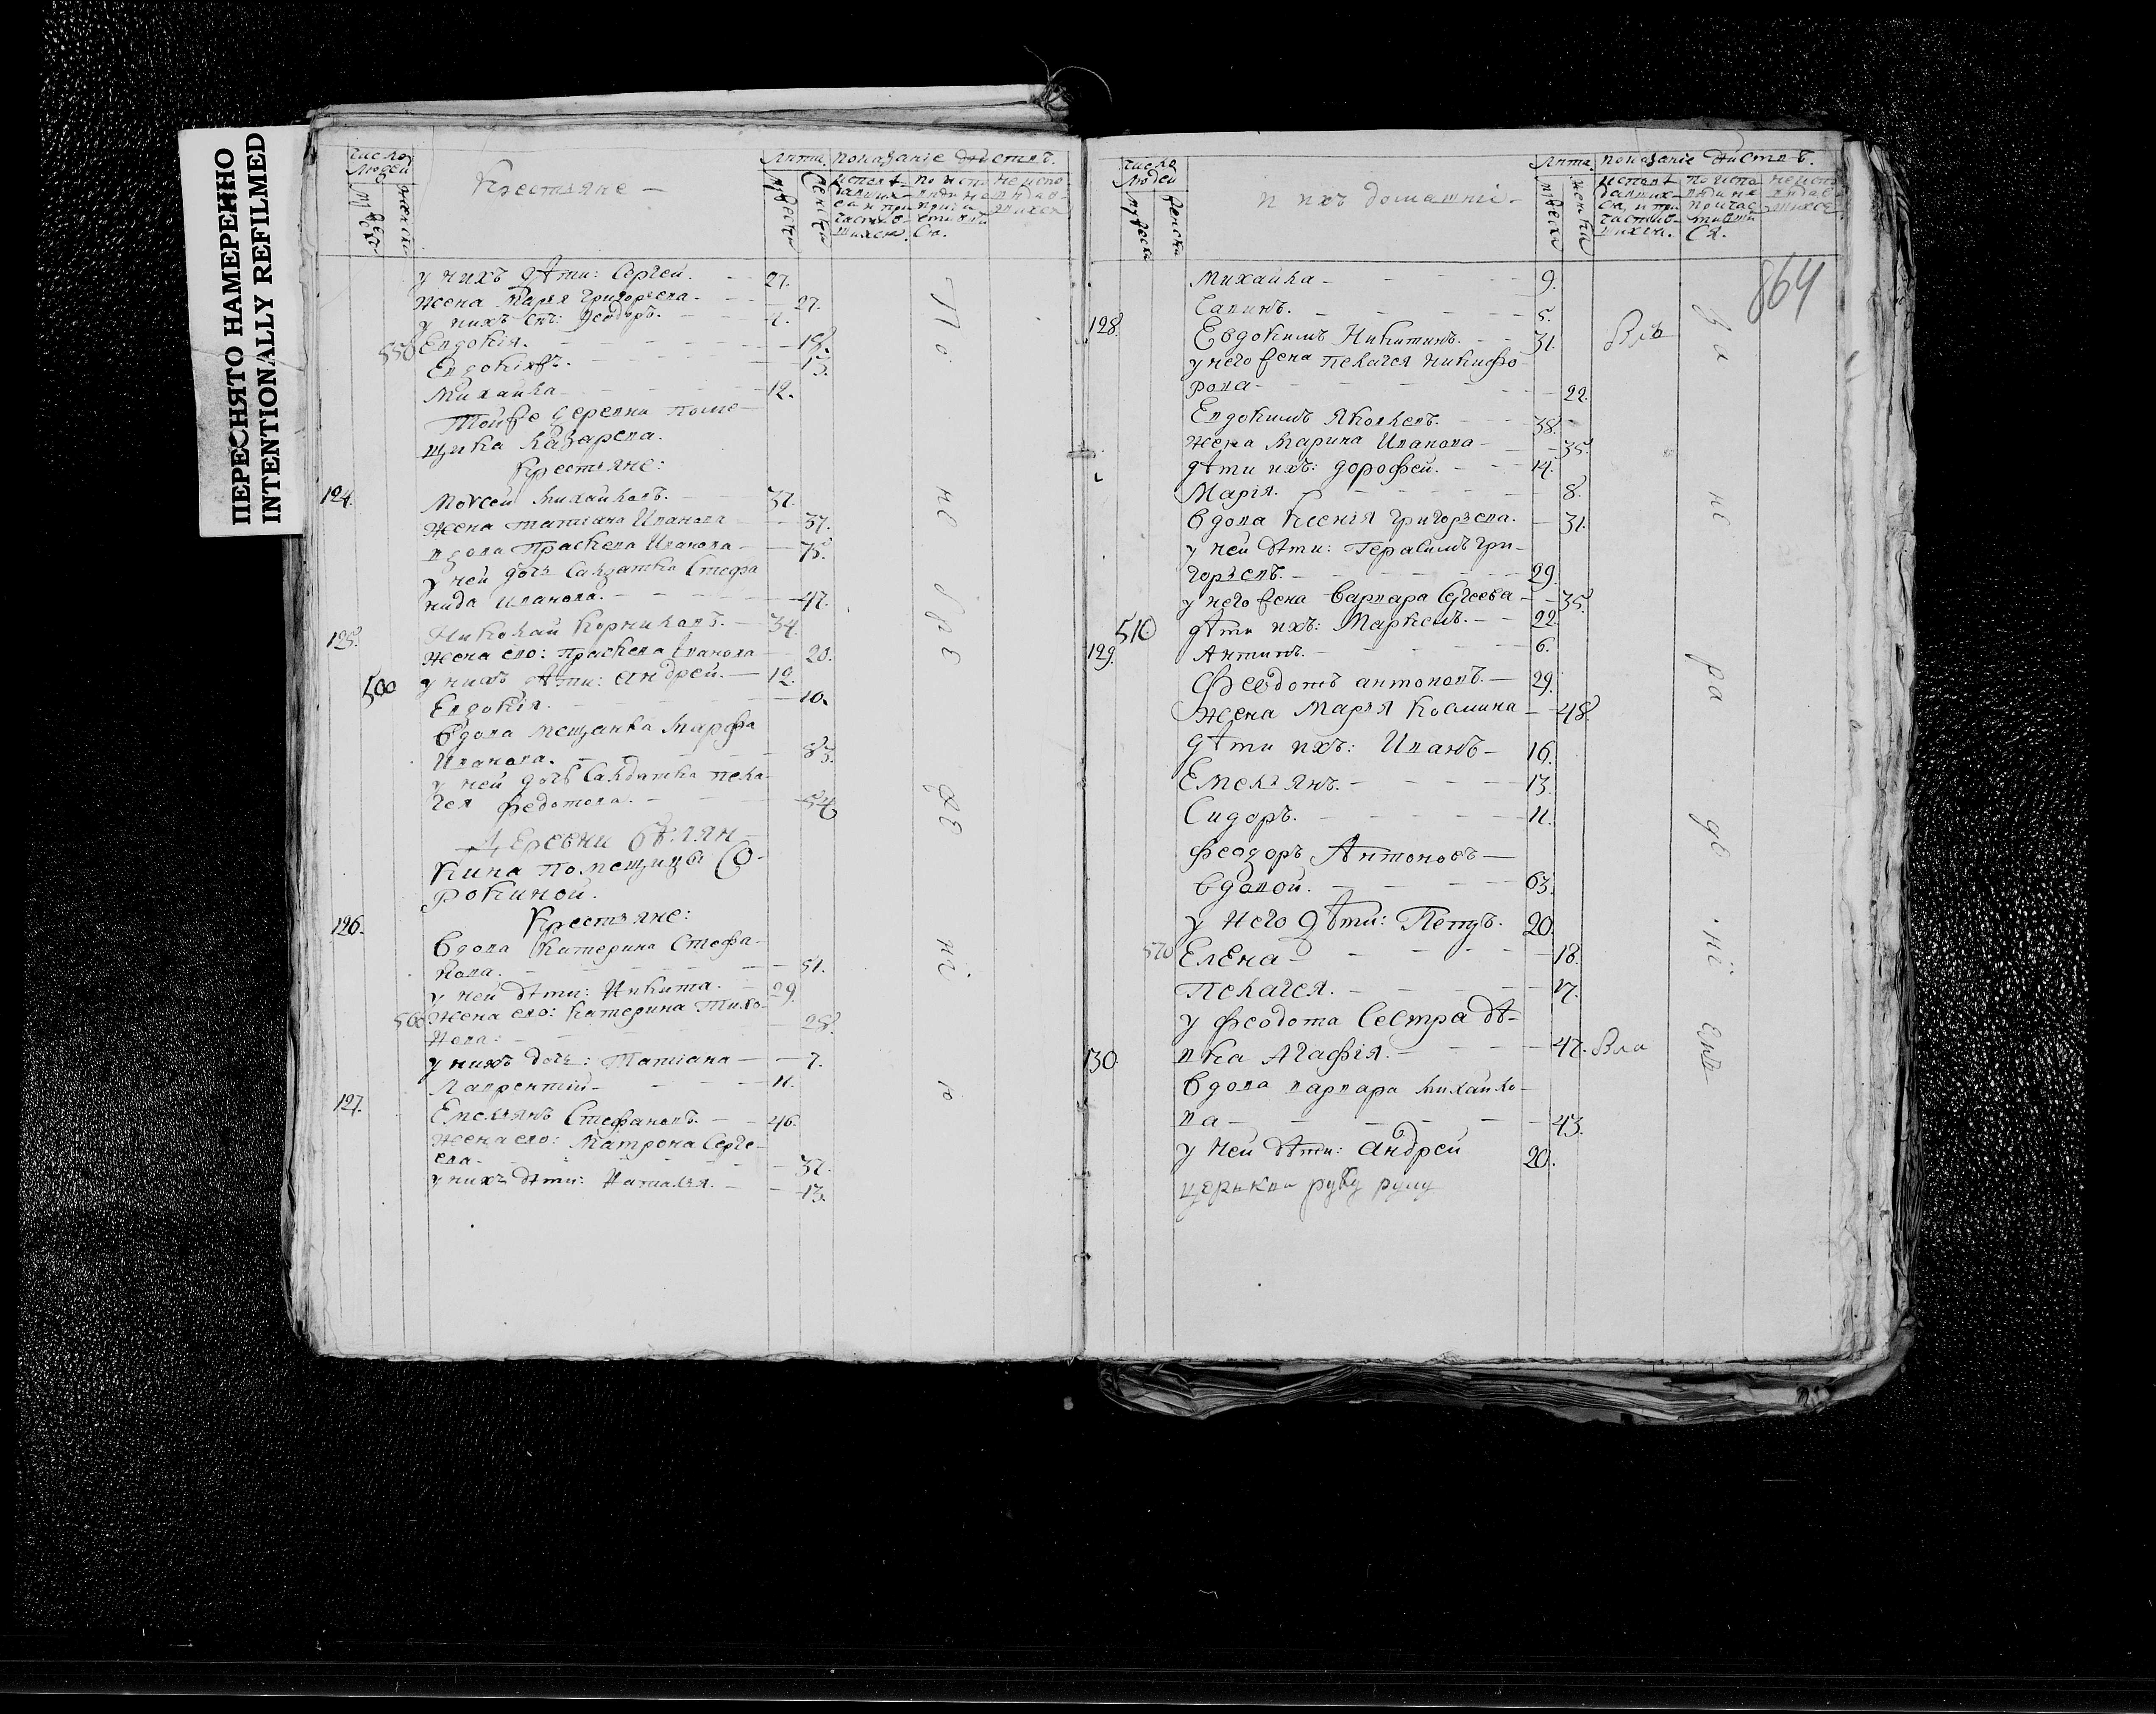 ПЕРЕСНЯТО НАМЕРЕННО
INTENTIONALLY REFILMED
число людей
мужеска
женска
Крестьяне -
лѣта
мужеска
женска
показаніе дѣйствъ.
исповѣдавшихся и причастившихся.
по исповѣди не причастившихся.
не исповѣдавшихся
у нихъ дѣти: Сергей. 27.
жена Марья Григорьева. 27.
у нихъ снъ: Ѳеодоръ.
550 Евдокія.
Михайла 12.
Тойже деревни поме-
щика Казарева.
Крестьяне:
124. Моѵсей Михайловъ. 37.
жена татіана Иванова 37.
вдова Прасковья Иванова 75.
у ней дочь Салдатка Стефа
нида Иванова. 47.
125. Николай Корниловъ. 34.
жена ево: прасковья Иванова 20.
500 у нихъ дѣти: андрей. 12.
Евдокія. 10.
вдова мещанка Марфа
Иванова. 83.
у ней дочь Салдатка пела-
гея федотова. 54
Деревни
помещицы Со-
рокиной.
Крестьяне:
126. вдова Катерина Стефа-
нова. 51.
у ней дѣти: Никита. 29.
560 жена ево: Катерина Тихо-
нова: 28.
у нихъ дочь: Татіана 7.
Лаврентій 11.
127. Емельянъ Стефановъ. 46.
жена ево: Матрона Серге-
ева. 37.
у нихъ дѣти: Наталья. 13.
По не бре же ні ю
число людей
мужеска
женска
и ихъ домашніи -
лѣта
мужеска
женска
показаніе дѣйствъ.
исповѣдавшихся и причастившихся.
по исповѣди не причастившихся.
не исповѣдавшихся
864
Михайла 9.
Савинъ. 5.
128. Евдокимъ Никитинъ. 31.
у него жена пелагея никифо-
рова 22.
Евдокимъ Яковлевъ. 38.
жена Марина Иванова 35.
дѣти ихъ: дорофей. 14.
Марія. 8.
вдова Ксенія григорьева. 31.
у ней дѣти: Герасимъ гри-
горьевъ. 29.
у него жена варвара Сергеева 35.
510 дѣти ихъ: Маркелъ. 22.
129. Антипъ. 6.
Феодотъ антоновъ. 29.
жена Марья Космина 48.
дѣти ихъ: Иванъ 16.
Емельянъ. 13.
Сидоръ. 11.
феодоръ Антоновъ
вдовой. 63.
у него дѣти: Петръ. 20.
570 Елена 18.
Пелагея. 17.
у феодота сестра дѣ-
130. вка Агафія. 47.
вдова варвара Михайло-
ва 43.
у ней дѣти: андрей 20.
за не ра де ні емъ